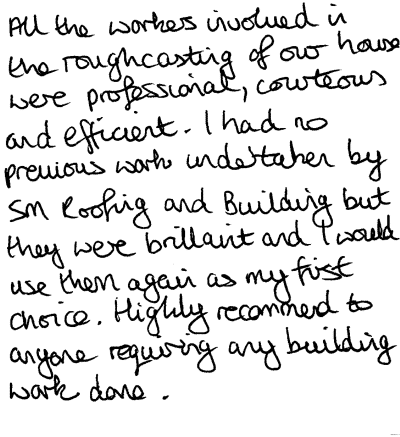 All the workers involved in
the roughcasting of our house
were professional, courteous
and efficient. I had no
previous work undertaken by
SM Roofing and Building but
they were brillaint and I would
use them again as my first
choice. Highly recommend to
anyone requiring any building
work done.